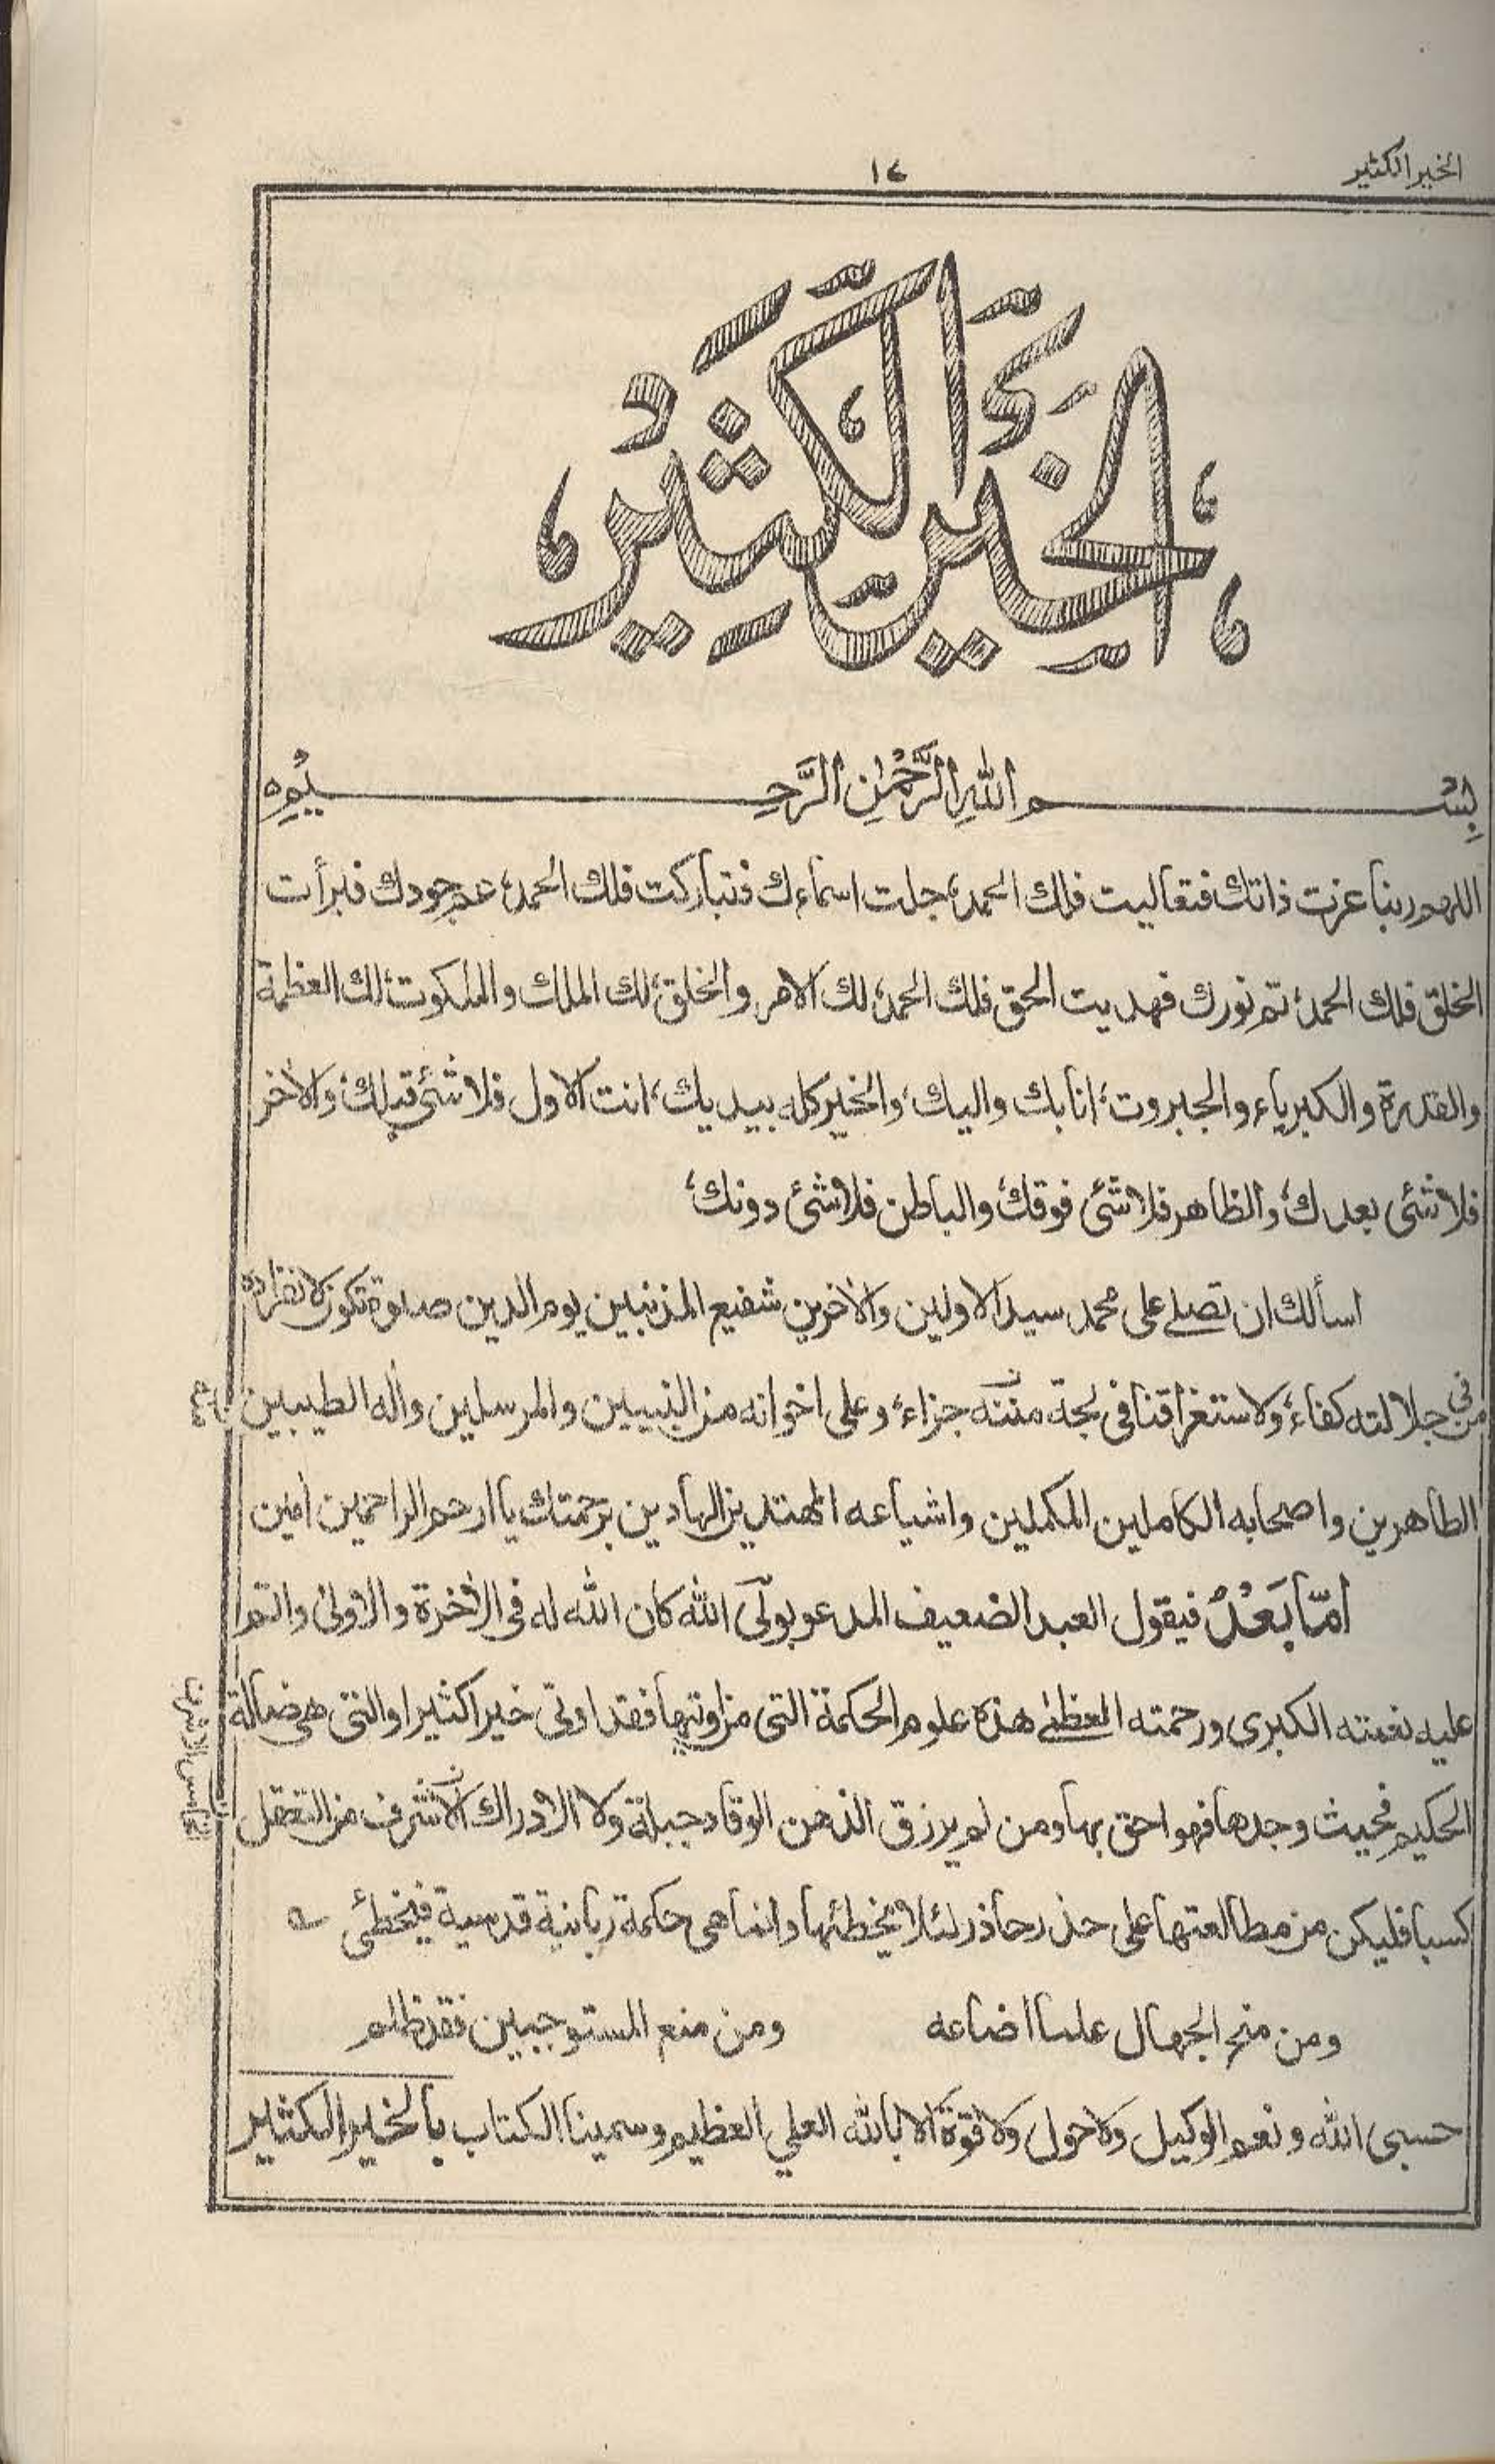 الخير الكثير
١٤
الخَيْرُ الكَثِيْرُ
بِسْمِ اللّٰهِ الرَّحْمٰنِ الرَّحِيْمِ
اللهم ربنا عزت ذاتك فتعاليت فلك الحمد، جلت اسماءك فتباركت فلك الحمد، عم جودك فبرأت
الخلق فلك الحمد، تم نورك فهديت الحق فلك الحمد، لك الامر والخلق، لك الملك والملكوت، لك العظمة
والقدرة والكبرياء والجبروت، انا بك واليك، والخير كله بيديك، انت الاول فلا شئ قبلك، والآخر
فلا شئ بعدك، والظاهر فلا شئ فوقك، والباطن فلا شئ دونك،
اسألك ان تصلے على محمد سيد الاولين والآخرين شفيع المذنبين يوم الدين صلوة تكون لانفراده
فى جلالته كفاء، ولاستغراقنا فى لجة مننه جزاء، وعلى اخوانه من النبيين والمرسلين وآله الطيبين
الطاهرين واصحابه الكاملين المكملين واشياعه المهتدين الهادين برحمتك يا ارحم الراحمين آمين
امّا بَعْدُ فيقول العبد الضعيف المدعو بولّى الله كان الله له فى الآخرة والاولىٰ واتم
عليه نعمته الكبرى ورحمته العظمٰے هذه علوم الحكمة التى من اوتيها فقد اوتى خيرا كثيرا والتى هى ضالة
الحكيم فحيث وجدها فهو احق بها ومن لم يرزق الذهن الوقاد جبلة ولا الادراك الاشرف من التعقل
كسبا فليكن من مطالعتها على حذر حاذر لئلا يخطئها وانما هى حكمة ربانية قدسية فيخطئ
ومن منح الجهال علما اضاعه ومن منع المستوجبين فقد ظلم
حسبى الله ونعم الوكيل ولا حول ولا قوة الا بالله العلي العظيم وسمينا الكتاب بالخير الكثير